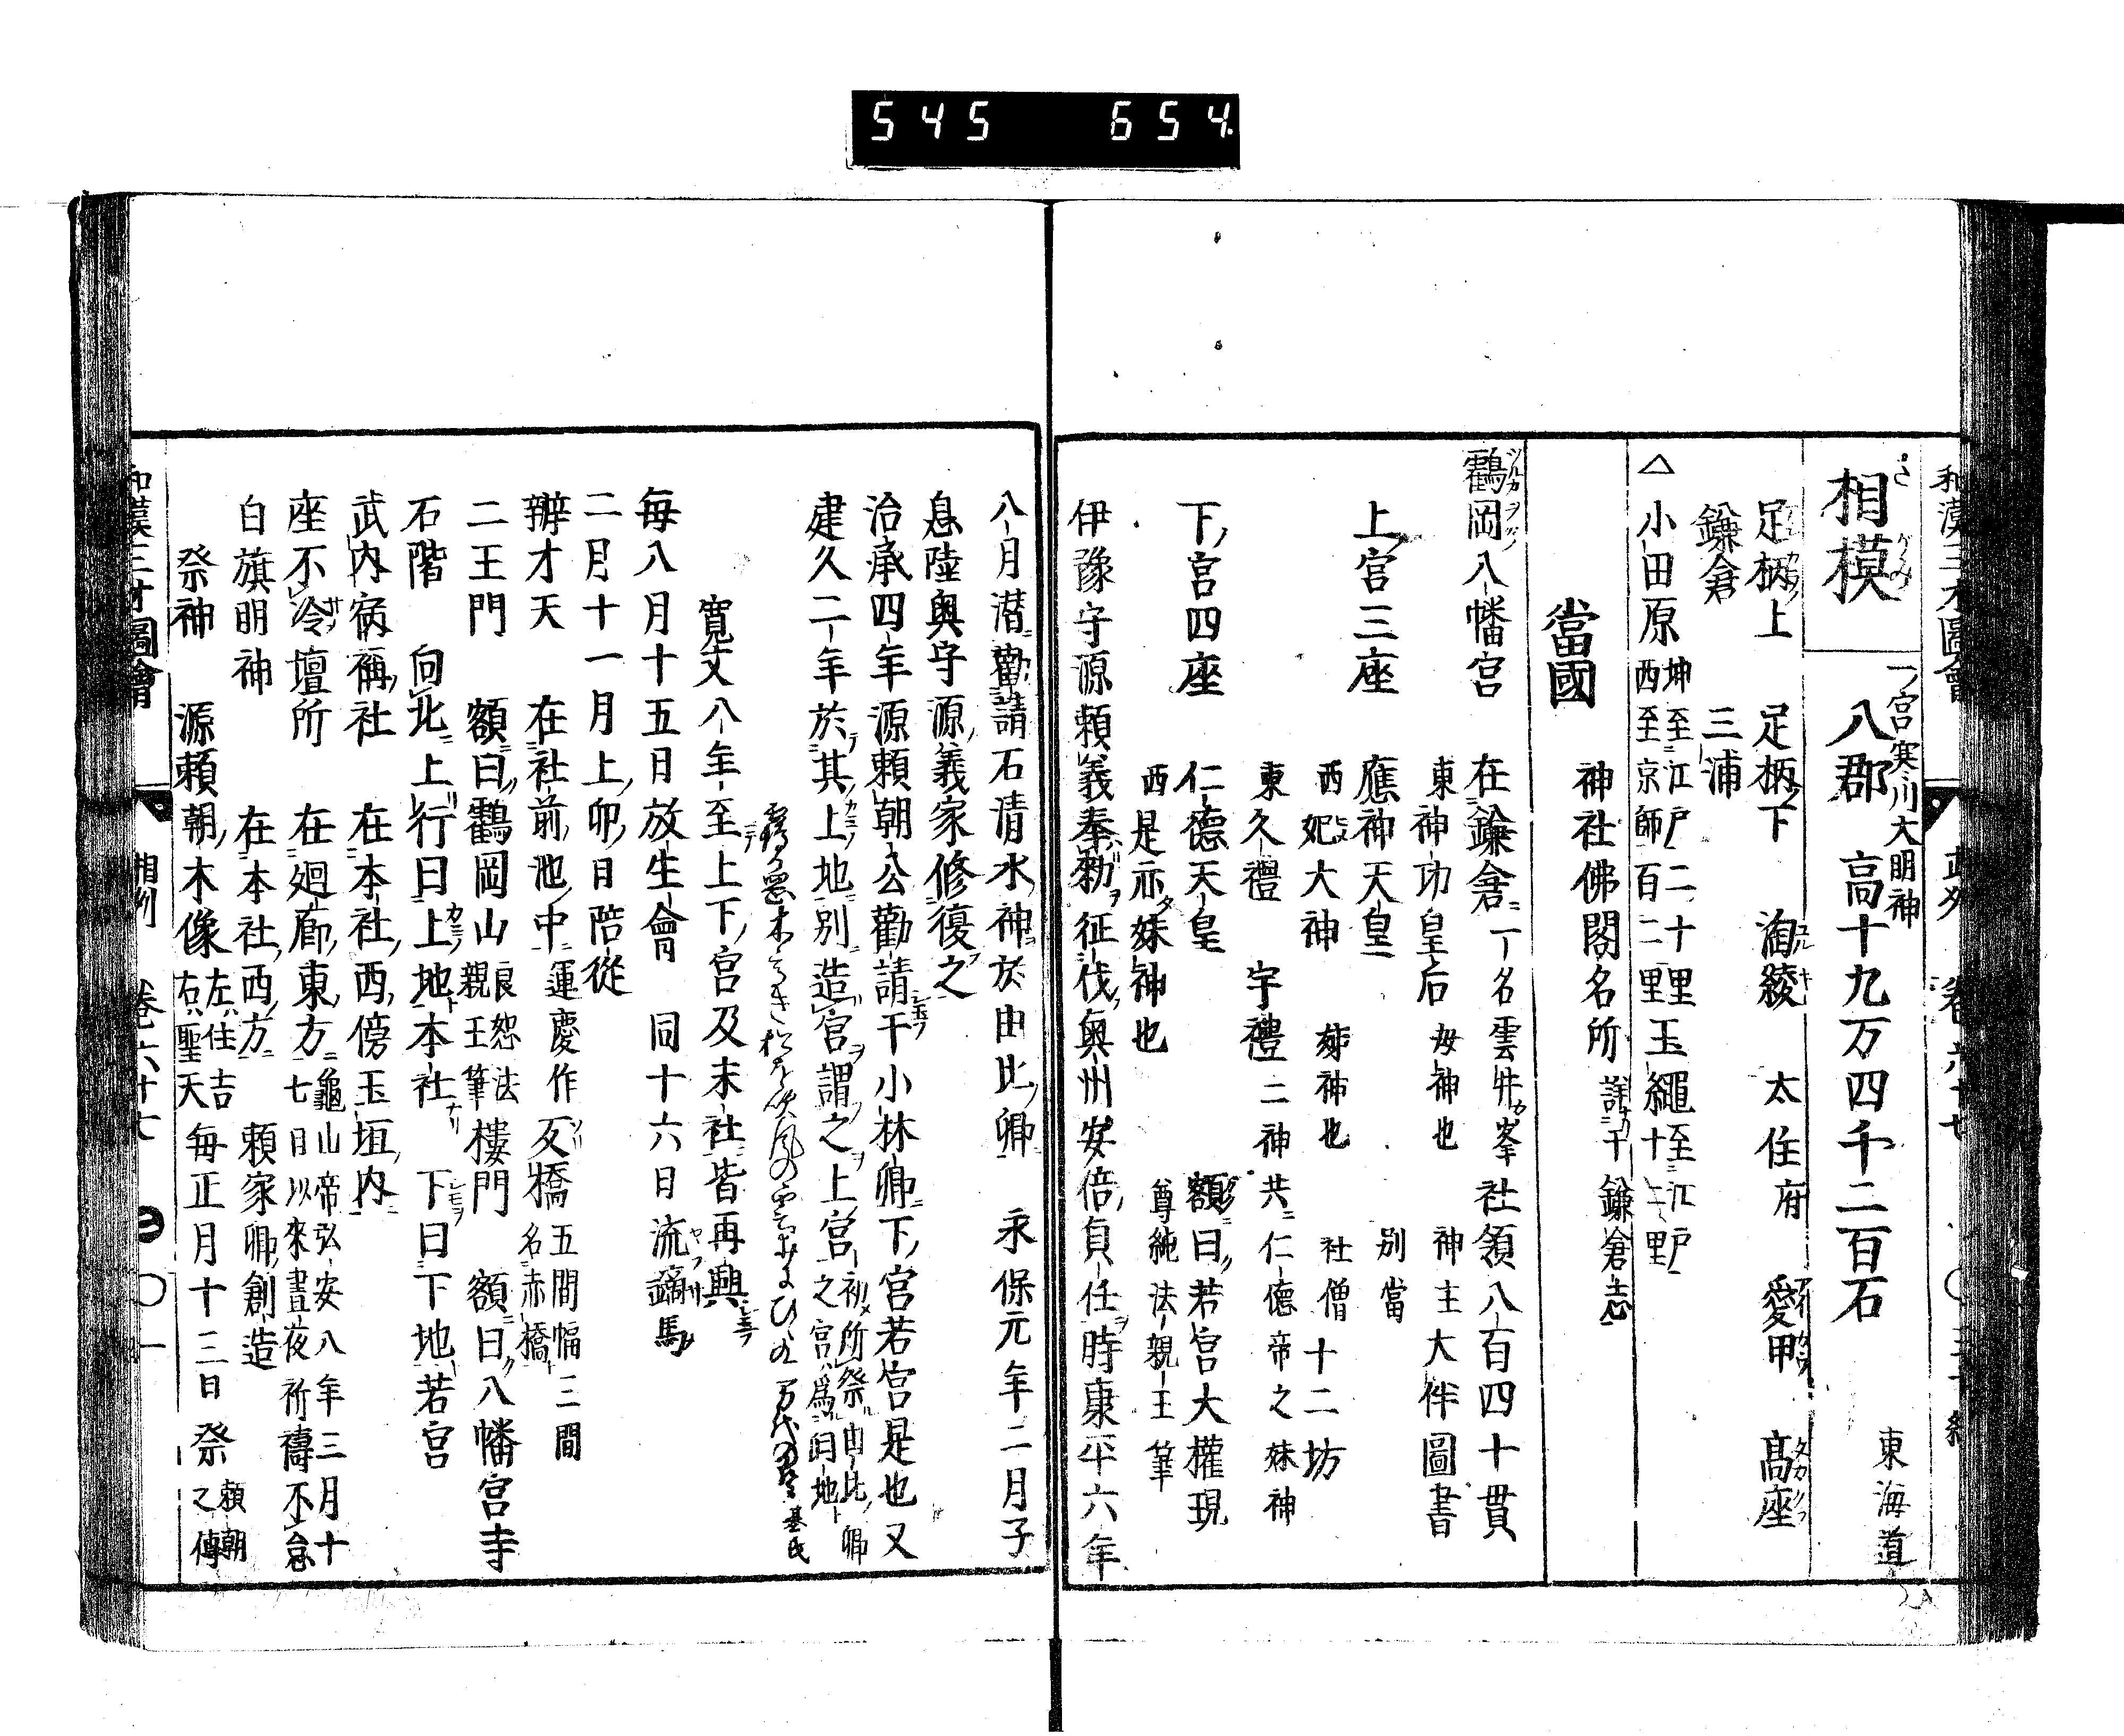 545 654
和漢三才圖會 武州 卷六十七 〇三十終
相模 八郡 高十九万四千二百石 東海道
一宮寒川大明神
足柄上 足柄下 淘綾 大住府 愛甲 高座
鎌倉 三浦
△小田原 坤至江戸二十里 西至京師百二里 玉繩至江戸十二里
當國 神社佛閣名所 詳于鎌倉志
鶴岡八幡宮 在鎌倉 一名雲井峯 社領八百四十貫
東神功皇后 母神也 神主大伴圖書
上宮三座 應神天皇 別當
西妃大神 姉神也 社僧十二坊
東久禮 宇禮 二神共仁德帝之妹神
下宮四座 仁德天皇 額曰若宮大權現
西是亦妹神也 尊純法親王筆
伊豫守源賴義奉勅征伐奥州安倍貞任時康平六年
八月潜勸請石清水神於由比卿 永保元年二月子
息陸奥守源義家修復之
治承四年源賴朝公勸請于小林卿下宮若宮是也又
建久二年於其上地別造宮謂之上宮 初所祭由比卿之宮爲同地
基氏
寛文八年至上下宮及末社皆再興
毎八月十五日放生會 同十六日流鏑馬
二月十一月上卯日陪從
辨才天 在社前池中 運慶作 反橋 五間幅三間 名赤橋
二王門 額曰鶴岡山 良恕法親王筆 樓門 額曰八幡宮寺
石階 向北上行曰上地本社 下曰下地若宮
武内病稱社 在本社西傍玉垣内
座不冷壇所 在廻廊東方 龜山帝弘安八年三月十七日以來晝夜祈禱不怠
白旗明神 在本社西方 賴家卿創造
祭神 源賴朝木像 左住吉 右聖天 毎正月十三日祭 賴朝之傳
和漢三才圖會 相州 卷六十七 〇一